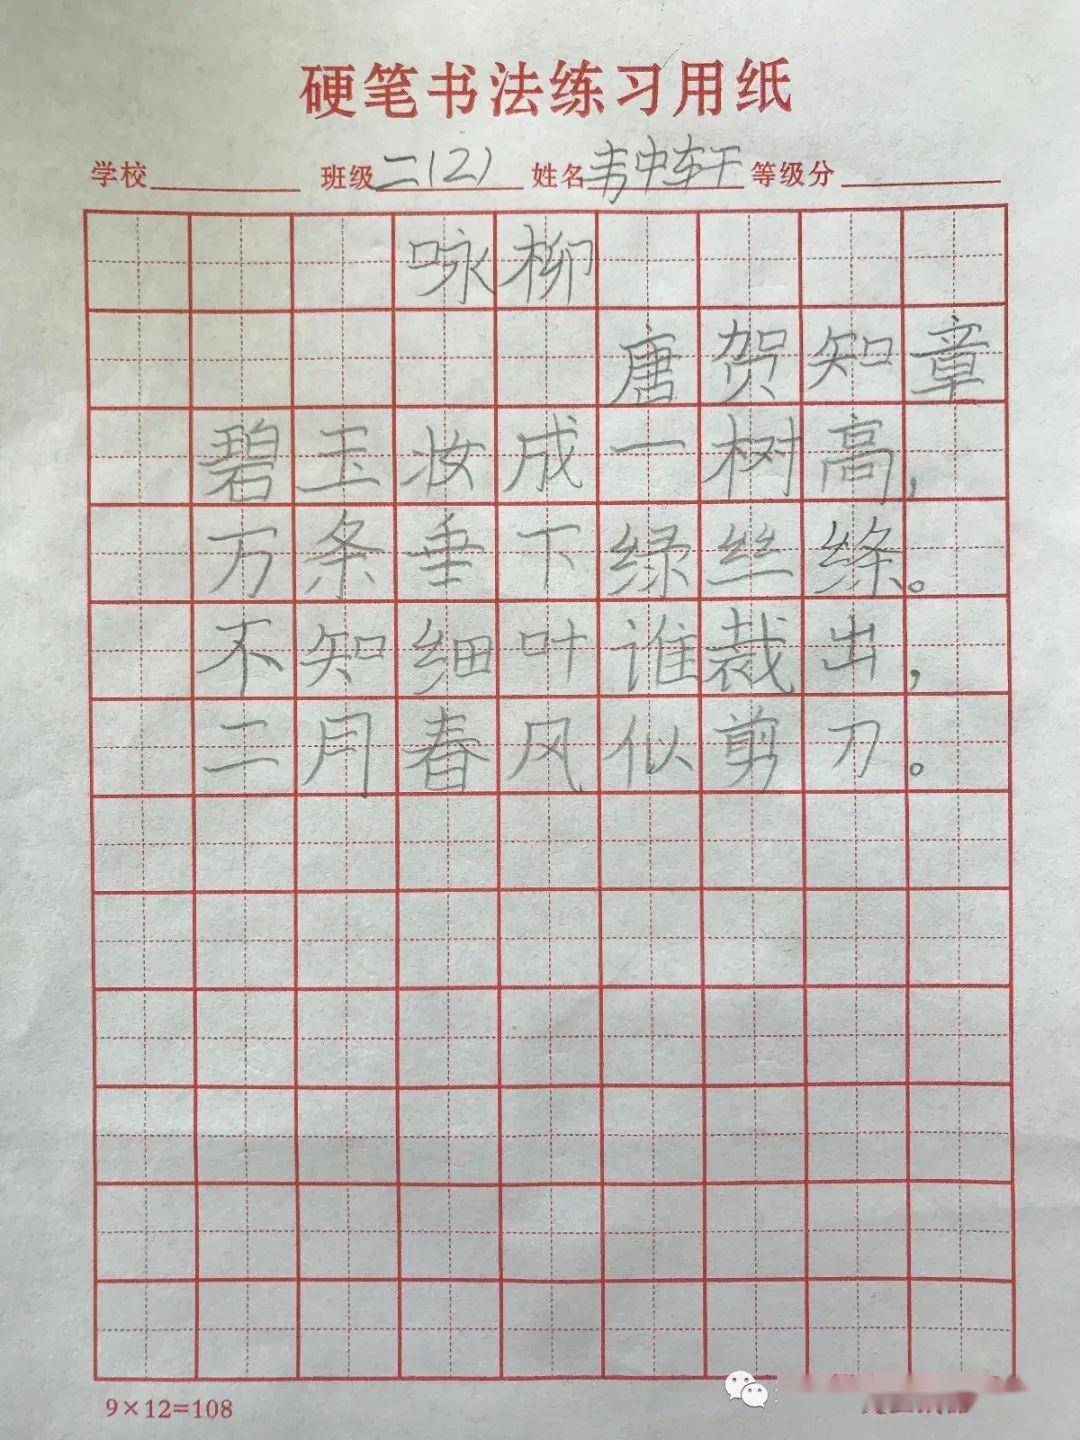 硬笔书法练习用纸
学校 班级 二(2) 姓名 韦中轩 等级分
咏柳
唐贺知章
碧玉妆成一树高,
万条垂下绿丝绦。
不知细叶谁裁出,
二月春风似剪刀。
9×12=108